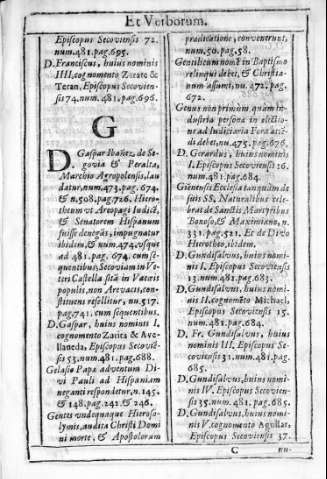 Et Verborum.
Episcopus Secoviensis 72.
num.481.pag.695.
D. Franciscus, huius nominis
IIII, cognomento Zarate &
Teran, Episcopus Secovien-
sis 74. num. 481. pag.696.
G
D. Gaspar Ibañez, de Se-
govia & Peralta,
Marchio Agropolensis, lau
datur, num.473. pag. 674.
& n.508.pag.726. Hiero-
theum vt Areopagi Iudicẽ,
& Senatorem Hispanum
fuisse denegãs, impugnatur
ibidem, & num 474. vsque
ad 481. pag. 674. cum se-
quentibus, Secovium in Ve-
teri Castella sitã in Vaceis
populis, non Arevacis, con-
stituens refellitur, nu.517.
pag.741. cum sequentibus.
D. Gaspar, huius nominis I.
cognomento Zarita & Ave-
llaneda, Episcopus Secoviẽ-
sis 53.num.481.pag.688.
Gelasio Papæ adventum Di-
vi Pauli ad Hispaniam
neganti respondetur, n.145.
& 148.pag.242.& 246.
Gentes vndequaque Hieroso-
lymis, audita Christi Domi
ni morte, & Apostolorum
prædicatione, conventrunt,
num.50.pag.58.
Gentilicum nomẽ in Baptismo
relinqui debet, & Christia-
num assumi, nu. 472. pag.
672.
Genus non primùm quàm in-
dustria persona in electio-
ne ad Iudiciaria Fora attẽ-
di debet, nu.475. pag.676.
D. Gerardus, huius nominis
I, Episcopus Secoviensis 26.
num.481.pag.684.
Ecclesia tanquàm de
suis SS. Naturalibus cele-
brat de Sanctis Martyribus
Bonoso, & Maximiano, n.
331. pag.521. Et de Divo
Hierotheo, ibidem.
D. Gundisalvus, huius nomi-
nis I. Episcopus Secoviensis
13.num.481.pag.683.
D. Gundisalvus, huius nomi-
nis II. cognomẽto Michael,
Episcopus Secoviensis 15.
num.481.pag.684.
D. Fr. Gundisalvus, huius
nominis III. Episcopus Se-
coviensis 31. num.481.pag.
685.
D. Gundisalvus, huius nomi-
nis IV. Episcopus Secovien-
sis 35. num.481. pag.685.
D. Gundisalvus, huius nomi-
nis V. cognomento Aguilar,
Episcopus Secoviensis 37.
C